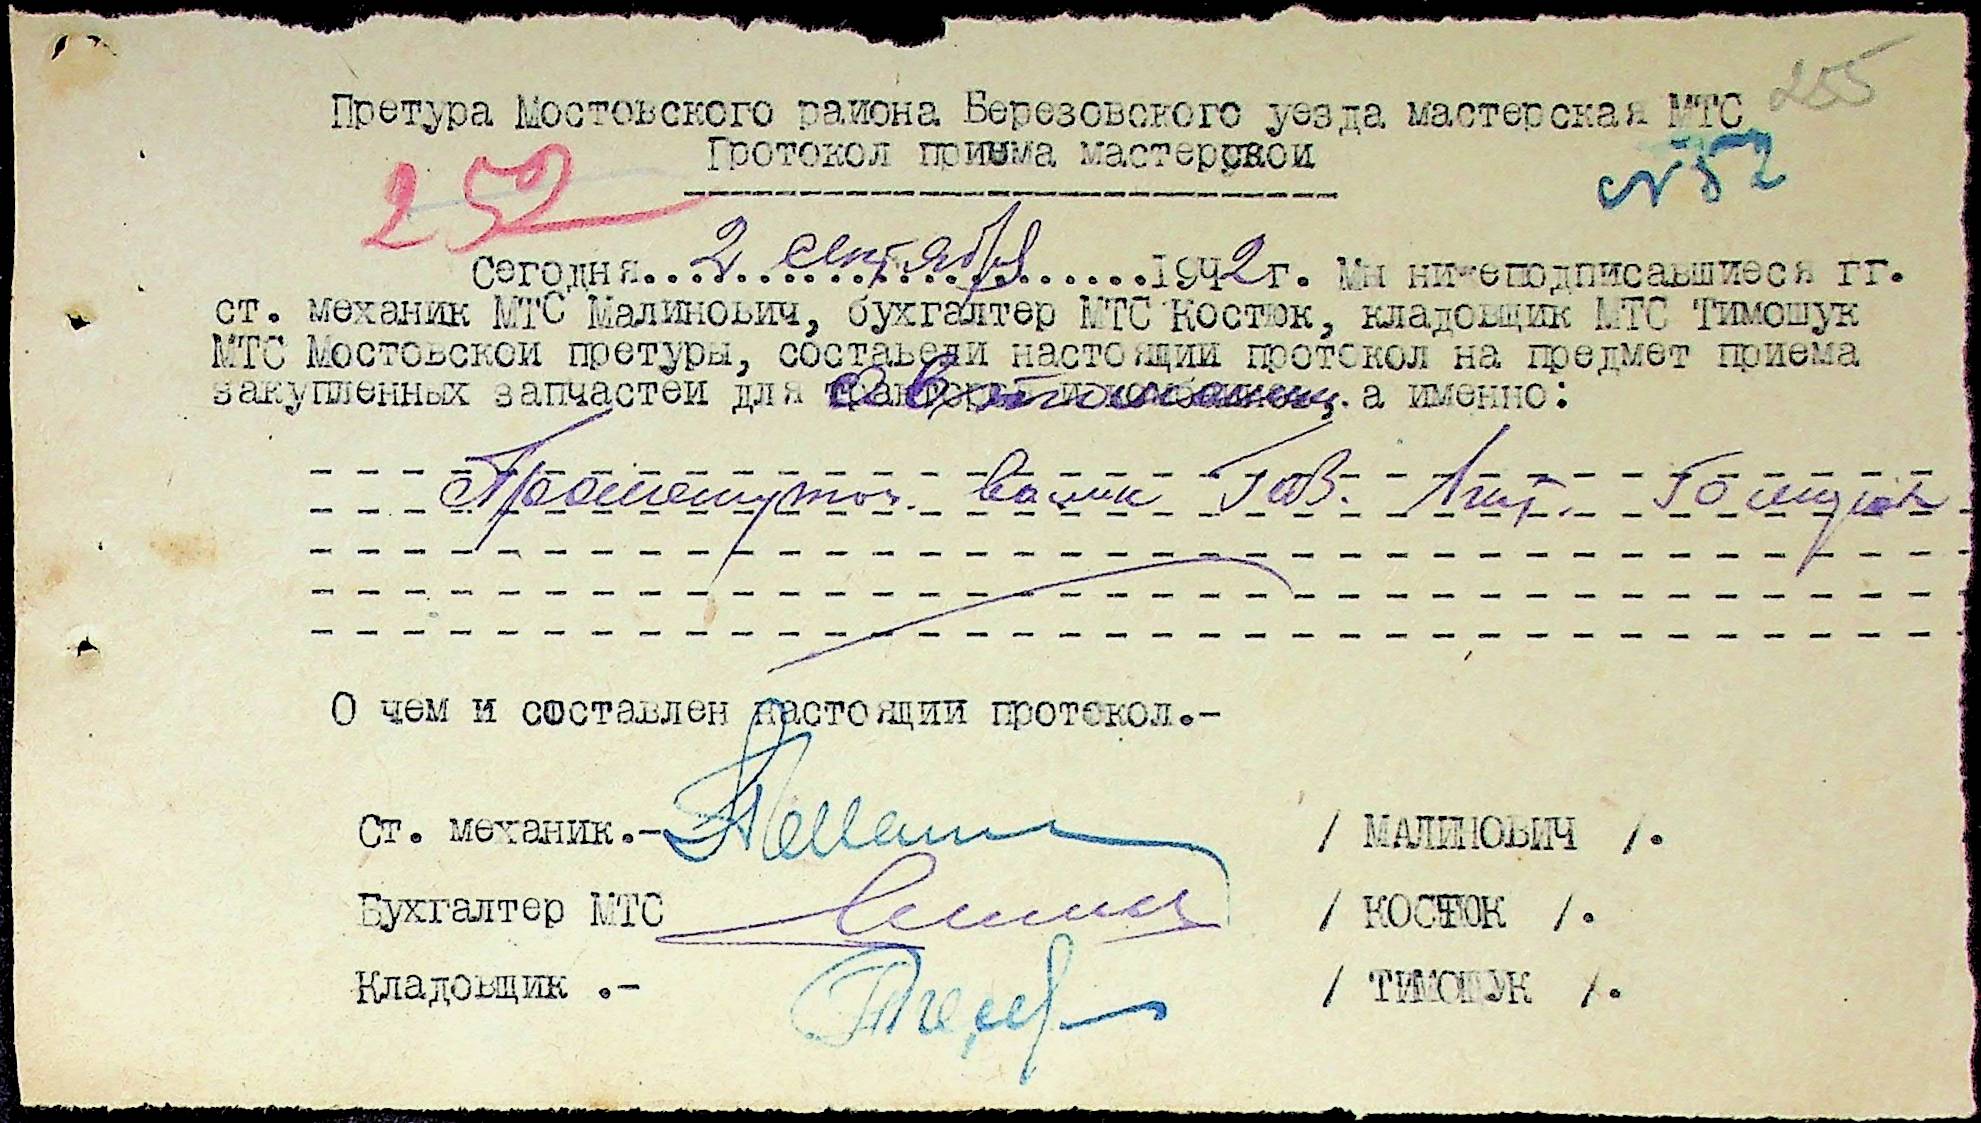 255
Претура Мостовского раиона Березовского уезда мастерская МТС
Протокол приема мастерской
252
№ 52
Сегодня...2 сентября......1942г. Мн нижеподписавшиеся гг.
ст. механик МТС Малинович, бухгалтер МТС Костюк, кладовщик МТС Тимошук
МТС Мостовскои претуры, составели настоящии протокол на предмет приема
закупленных запчастеи для автомашин, а именно:
Промежуточ. валик
О чем и составлен настоящии протокол.-
Ст. механик.- / МАЛИНОВИЧ /.
Бухгалтер МТС / КОСТЮК /.
Кладовщик .- / ТИМОШУК /.